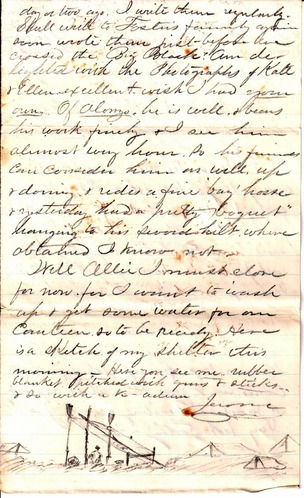 day or two ago. I write them regularly.
Shall write to Fosters family again
soon wrote them just before we
crossed the Big Black. Am de-
lighted with the Photographs of Kate
& Ellen, excellent. wish I had your
own. Of Alonzo, he is well, & bears
his work finely & I see him
almost every hour. So his friends
can consider him as well, up
& doing, & rides a fine bay horse
& yesterday had a pretty "boquet"
hanging to his sword hilt, where
obtained I know not.
Well Allie I must close
for now, for I want to wash
up & get some water for our
Canteen so to be ready. Here
is a sketch of my shelter this
morning. Here you see me, rubber
blanket pitched with guns & sticks.
& so with a adieu